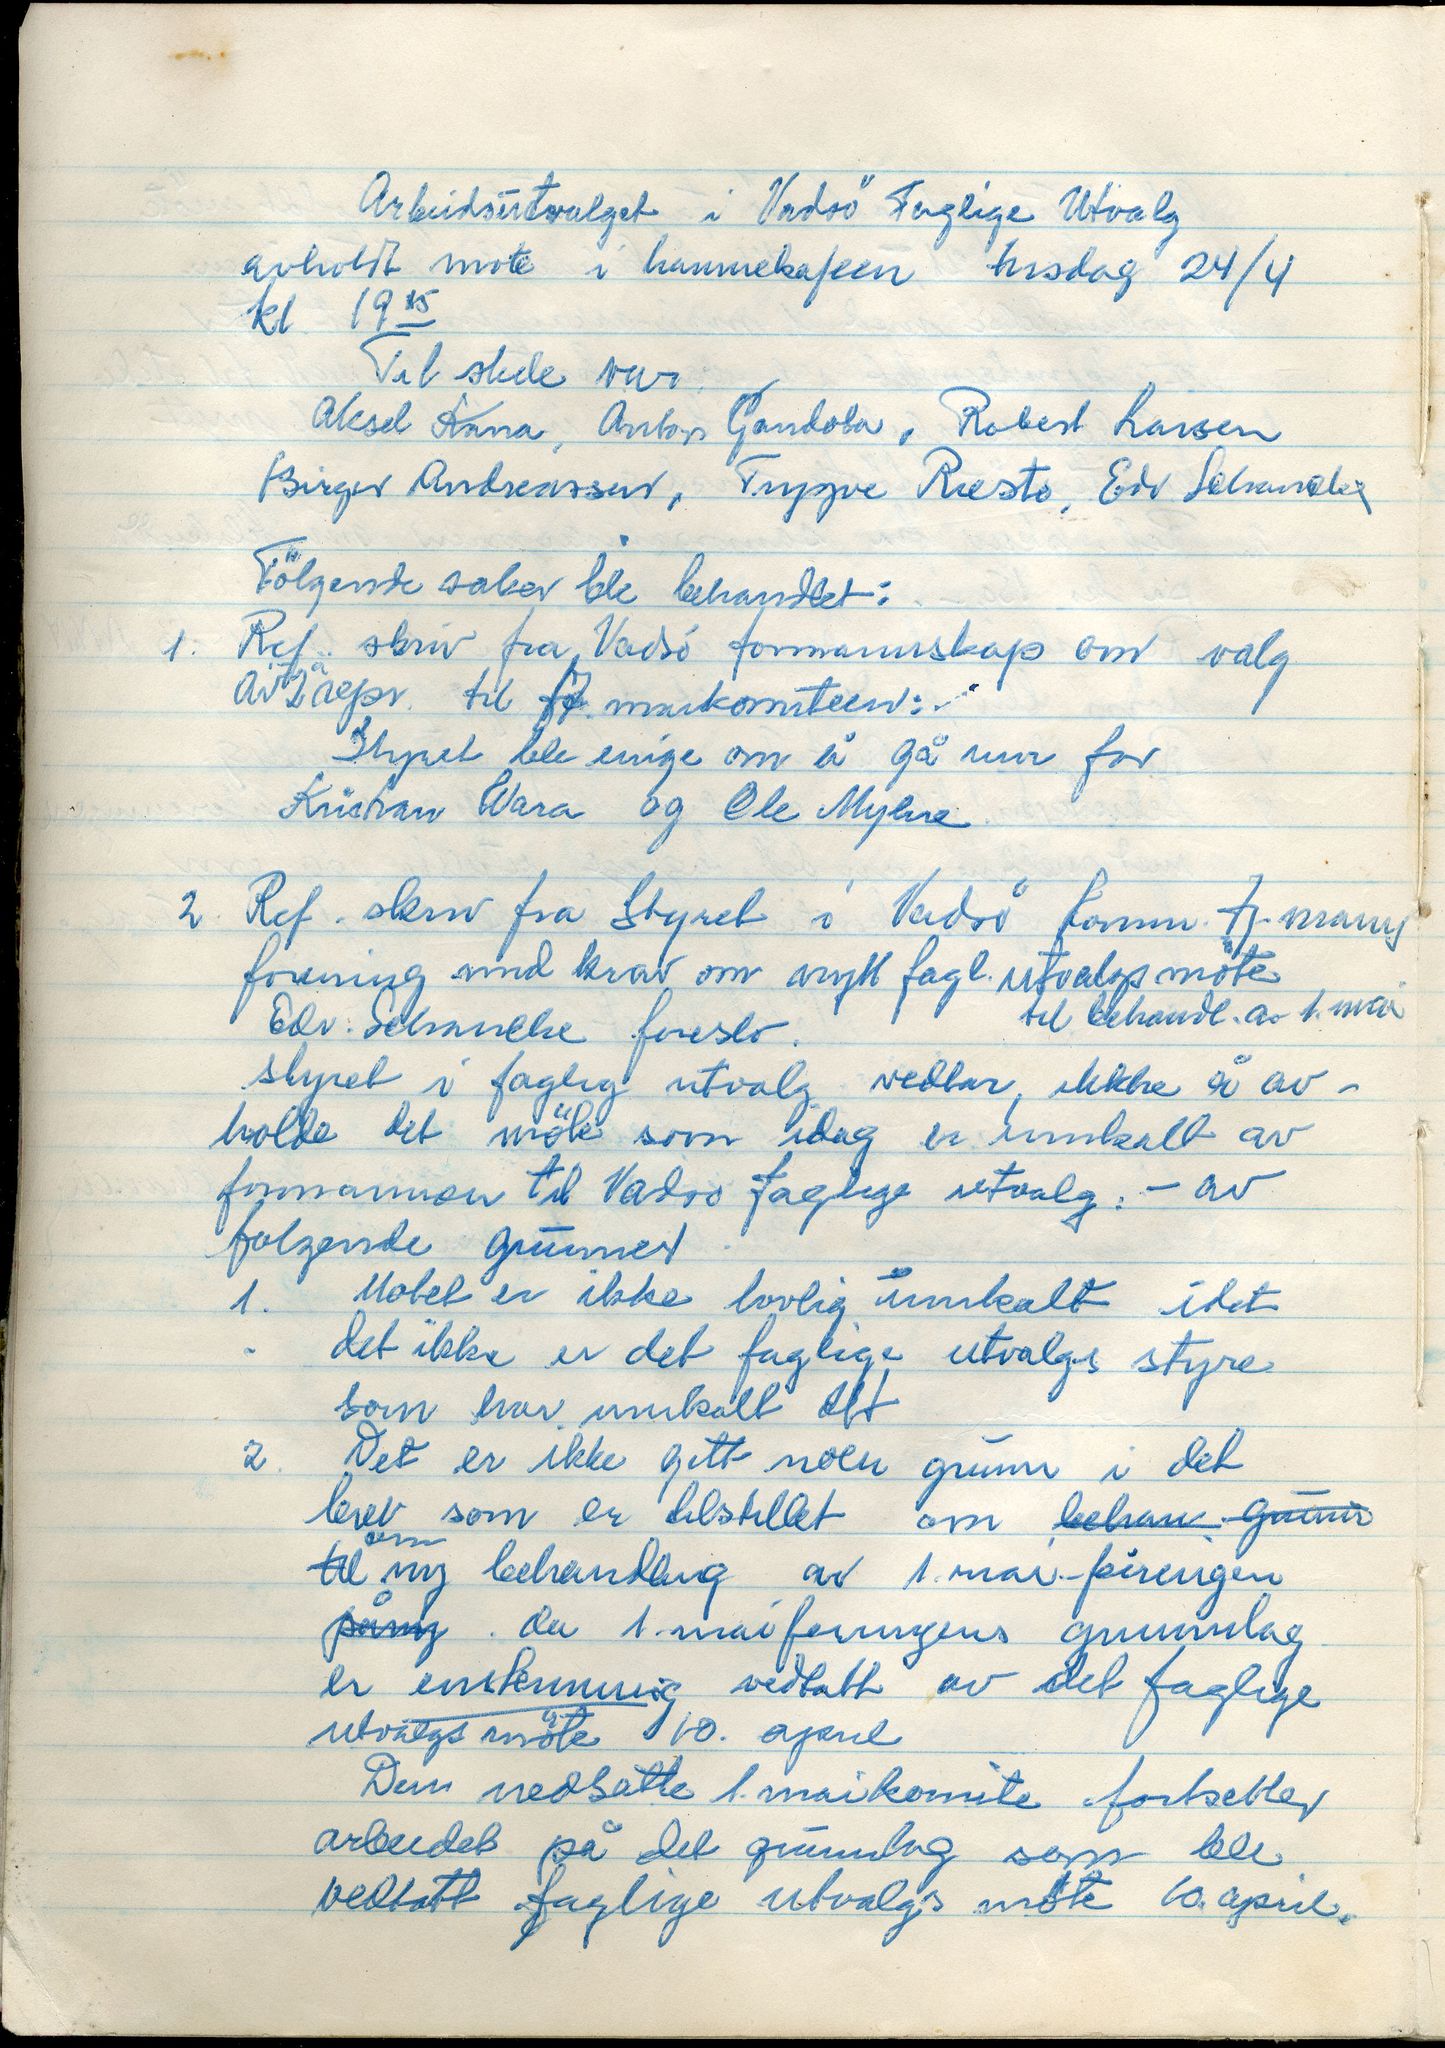 Arbeidsutvalget i Vadsö Faglige Utvalg
avholdt möte i havnekafeen tirsdag 24/4
kl 19 15
Til stede var
Aksel Kana, Anton Gandola, Robert Larsen
Birger Andreassen, Trygve Riesto, Edv Schancke
Fölgende saker ble behandlet:
1. Ref. skriv fra Vadsö formannskap om valg
av 2 repr. til 17 maikomiteen:
Styret ble enige om å gå inn for
Kristian Wara og Ole Myhre
2. Ref. skriv fra Styret i Vadsö komm. tj. manns
forening med krav om nytt fagl. utvalgs möte
til behandl. av 1. mai
Edv. Schancke foreslo.
styret i faglig utvalg vedtar, ikke å av-
holde det möte som idag er innkalt av
formannen til Vadsö faglige utvalg: - av
folgende grunner.
1. Motet er ikke lovlig innkalt idet
det ikke er det faglige utvalgs styre
som har innkalt det
2. Det er ikke gitt noen grunn i det
brev som er tilstillet om behan grunn
til om ny behandling av 1. mai-feiringen
påny. da 1. maifeiringens grunnlag
er enstemmig vedtatt av det faglige
utvalgs möte 10. april
Den nedsatte 1. maikomite fortsetter
arbeidet på det grunnlag som ble
vedtatt faglige utvalgs möte 10. april.